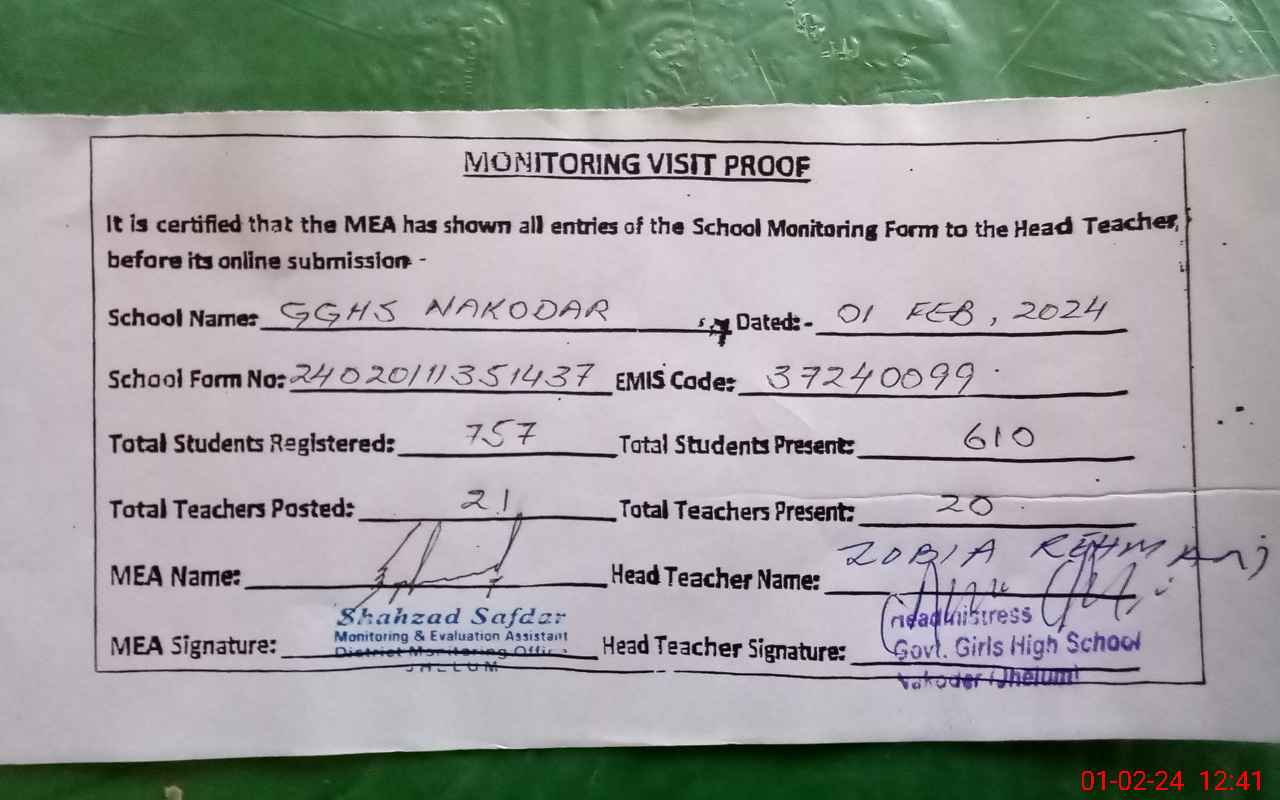 MONITORING VISIT PROOF
It is certified that the MEA has shown all entries of the School Monitoring Form to the Head Teacher,
before its online submission -
School Name: GGHS NAKODAR Dated:- 01 FEB, 2024
School Form No: 24020111351437 EMIS Code: 37240099
Total Students Registered: 757 Total Students Present: 610
Total Teachers Posted: 21 Total Teachers Present: 20
MEA Name: Head Teacher Name: ZOBIA REHMAN
Shahzad Safdar
Monitoring & Evaluation Assistant
District Monitoring Office
JHELUM
MEA Signature: Head Teacher Signature:
Headmistress
Govt. Girls High School
Nakoder (Jhelum)
01-02-24 12:41